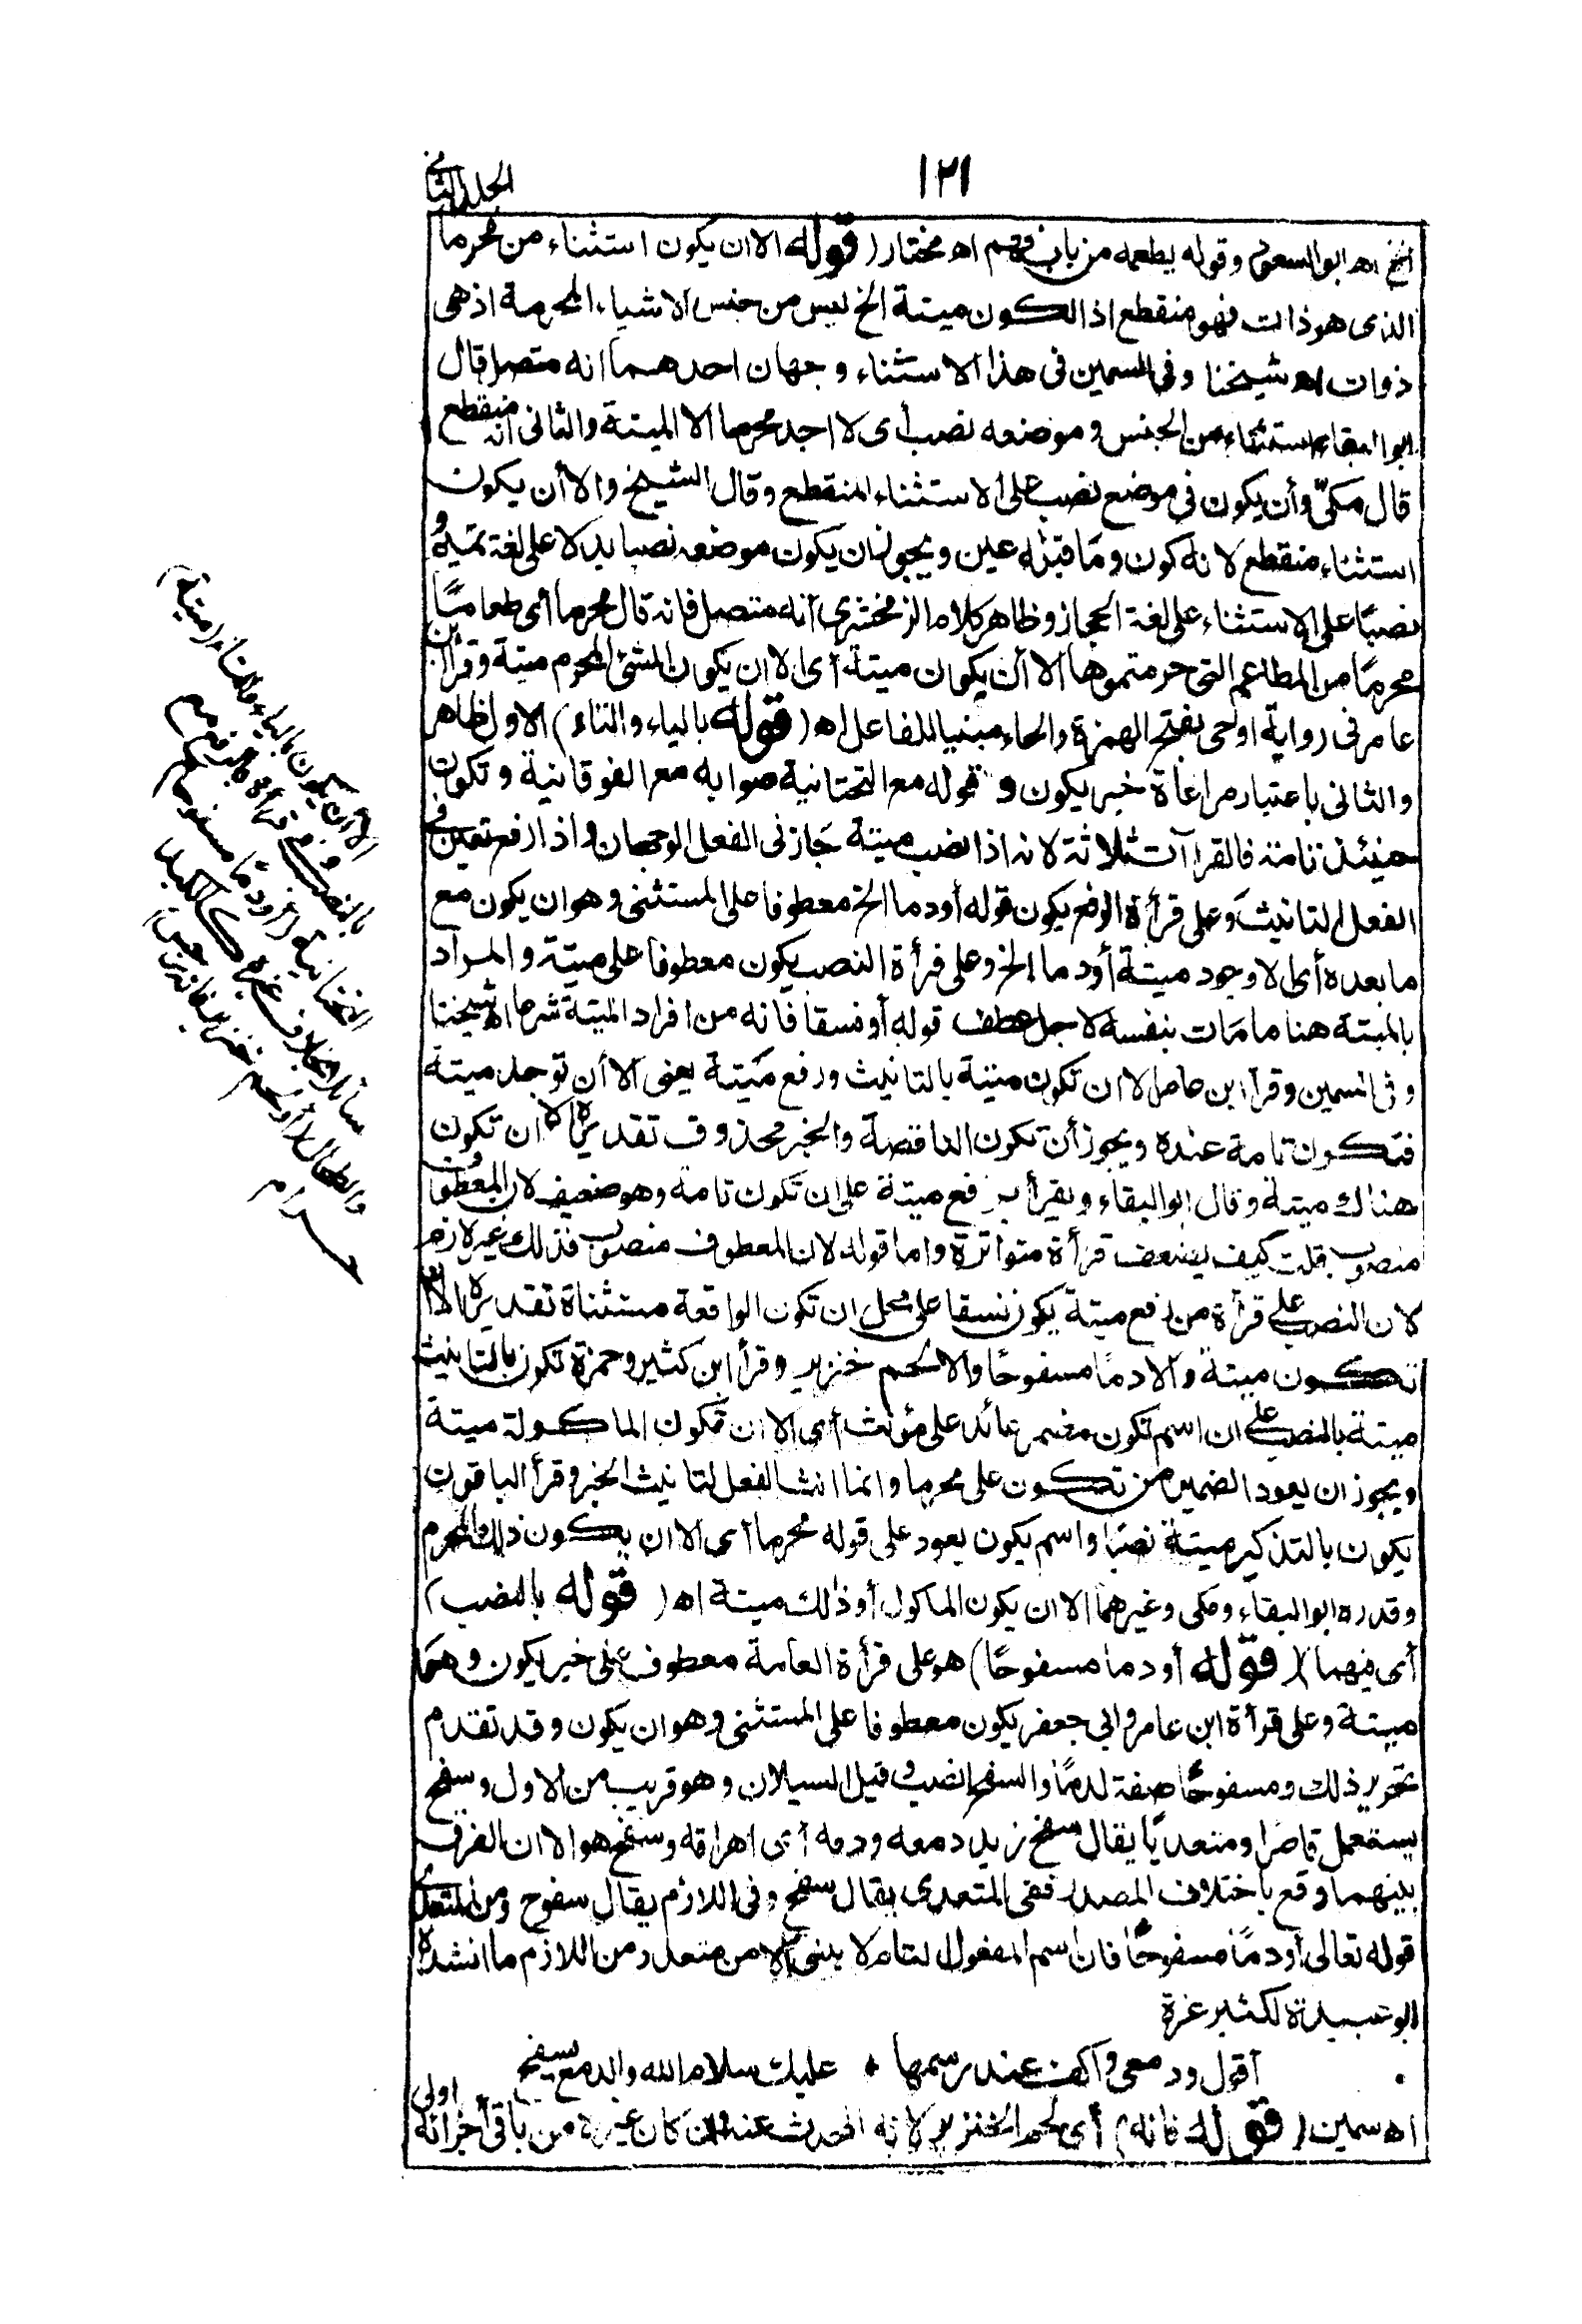 ١٢١
الجلد الثاني
الخ اه ابو السعود وقوله يطعمه من باب فهم اه مختار (قوله الا ان يكون استثناء من محرما
الذى هو ذات فهو منقطع اذ الكون ميتة الخ ليس من جنس الاشياء المحرمة اذ هى
ذوات اه شيخنا وفى السمين فى هذا الاستثناء وجهان احدهما انه متصل قال
ابو البقاء استثناء من الجنس وموضعه نصب أى لا اجد محرما الا الميتة والثانى انه منقطع
قال مكىّ وأن يكون فى موضع نصب على الاستثناء المنقطع وقال الشيخ والا أن يكون
استثناء منقطع لانه كون وما قبله عين ويجوز ان يكون موضعه نصبا بدلا على لغة تميم و
نصبًا على الاستثناء على لغة الحجاز وظاهر كلام الزمخشرى انه متصل فانه قال محرما أى طعاما
محرمًا من المطاعم التى حرمتموها الا أن يكون ميتة أى الا ان يكون الشئ المحرم ميتة وقرأ ابن
عامر فى رواية اوحى بفتح الهمزة والحاء مبنيا للفاعل اه (قوله بالياء والتاء) الاول ظاهر
والثانى باعتبار مراعاة خبر يكون و قوله مع التحتانية صوابه مع الفوقانية وتكون
حينئذ تامة فالقراآت ثلاثة لانه اذا نصب ميتة جاز فى الفعل الوجهان واذا رفع تعين فى
الفعل التانيث وعلى قرأة الرفع يكون قوله أو دما الخ معطوفا على المستثنى وهو ان يكون مع
ما بعده أى الا وجود ميتة أو دما الخ وعلى قرأة النصب يكون معطوفا على ميتة والمراد
بالميتة هنا ما مات بنفسه لاجل عطف قوله أو فسقا فانه من افراد الميتة شرعا اه شيخنا
وفى السمين وقرأ ابن عامر الا ان تكون ميتة بالتانيث ورفع ميتة يعنى الا أن توجد ميتة
فتكون تامة عنده ويجوز أن تكون الناقصة والخبر محذوف تقديره الا ان تكون
هناك ميتة وقال ابو البقاء ويقرأ برفع ميتة على ان تكون تامة وهو ضعيف لان المعطوف
منصوب قلت كيف يضعف قرأة متواترة واما قوله لان المعطوف منصوب فذلك غير لازم
لان النصب على قرأة من رفع ميتة يكون نسقا على محل ان تكون الواقعة مستثناة تقديره الا ان
تكون ميتة والا دمًا مسفوحًا والا لحم خنزير وقرأ ابن كثير وحمزة تكون بالتانيث
ميتة بالنصب على ان اسم تكون مضمر عائد على مؤنث أى الا ان تكون الماكولة ميتة
ويجوز ان يعود الضمير من تكون على محرما وانما انث الفعل لتانيث الخبر وقرأ الباقون
يكون بالتذكير ميتة نصبًا واسم يكون يعود على قوله محرما أى الا ان يكون ذلك المحرم
وقدره ابو البقاء ومكى وغيرهما الا ان يكون الماكول أو ذلك ميتة اه (قوله بالنصب)
أى فيهما) (قوله أو دما مسفوحًا) هو على قرأة العامة معطوف على خبر يكون وهو
ميتة وعلى قرأة ابن عامر وابي جعفر يكون معطوفا على المستثنى وهو ان يكون وقد تقدم
تحرير ذلك ومسفوحًا صفة لدمًا والسفح الصب وقيل السيلان وهو قريب من الاول وسفح
يستعمل قاصرًا ومتعديًا يقال سفح زيد دمعه ودمه أى اهراقه وسفح هو الا ان الفرق
بينهما وقع باختلاف المصدر ففى المتعدى يقال سفح وفى اللازم يقال سفوح ومن المتعدى
قوله تعالى أو دمًا مسفوحًا فان اسم المفعول التام لا يبنى الا من متعد ومن اللازم ما انشده
ابو عبيدة لكثير عزة
أقول ودمعى واكف عند رسمها ٭ عليك سلام الله والدمع يسفح
اه سمين (قوله فانه) أى لحم الخنزير لانه المحدث عنه وان كان غيره من باقى أجزائه
اولى
الا ان يكون بالياء والتاء (ميتة)
بالنصب وفى قرأة بالرفع مع
التحتانية (أو دما مسفوحا)
سائلا بخلاف غيره كالكبد
والطحال (أو لحم خنزير فانه رجس)
حرام